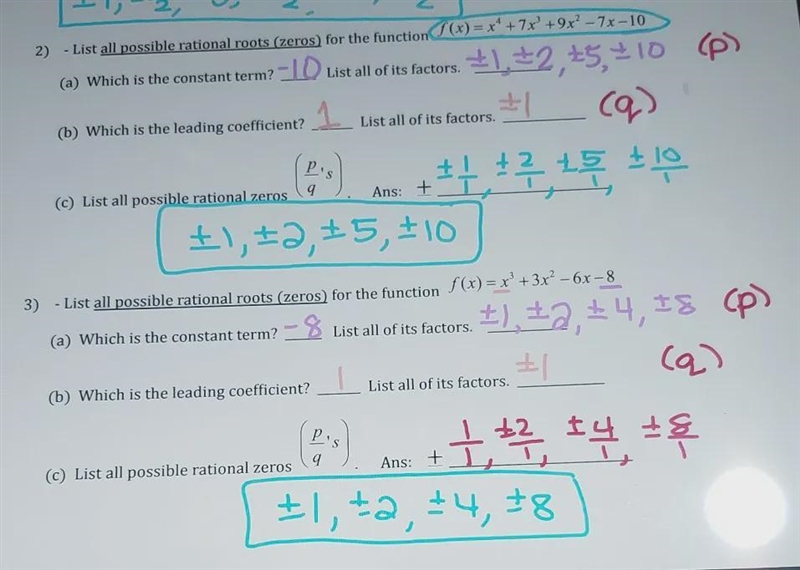 ±1, ±2,
2) - List all possible rational roots (zeros) for the function f(x) = x⁴ + 7x³ + 9x² − 7x − 10
(a) Which is the constant term? -10 List all of its factors. ±1, ±2, ±5, ±10 (p)
(b) Which is the leading coefficient? 1 List all of its factors. ±1 (q)
(c) List all possible rational zeros (p/q 's). Ans: ± ±1/1, ±2/1, ±5/1, ±10/1
±1, ±2, ±5, ±10
3) - List all possible rational roots (zeros) for the function f(x) = x³ + 3x² − 6x − 8
(a) Which is the constant term? -8 List all of its factors. ±1, ±2, ±4, ±8 (p)
(b) Which is the leading coefficient? 1 List all of its factors. ±1 (q)
(c) List all possible rational zeros (p/q 's). Ans: ± 1/1, ±2/1, ±4/1, ±8/1
±1, ±2, ±4, ±8